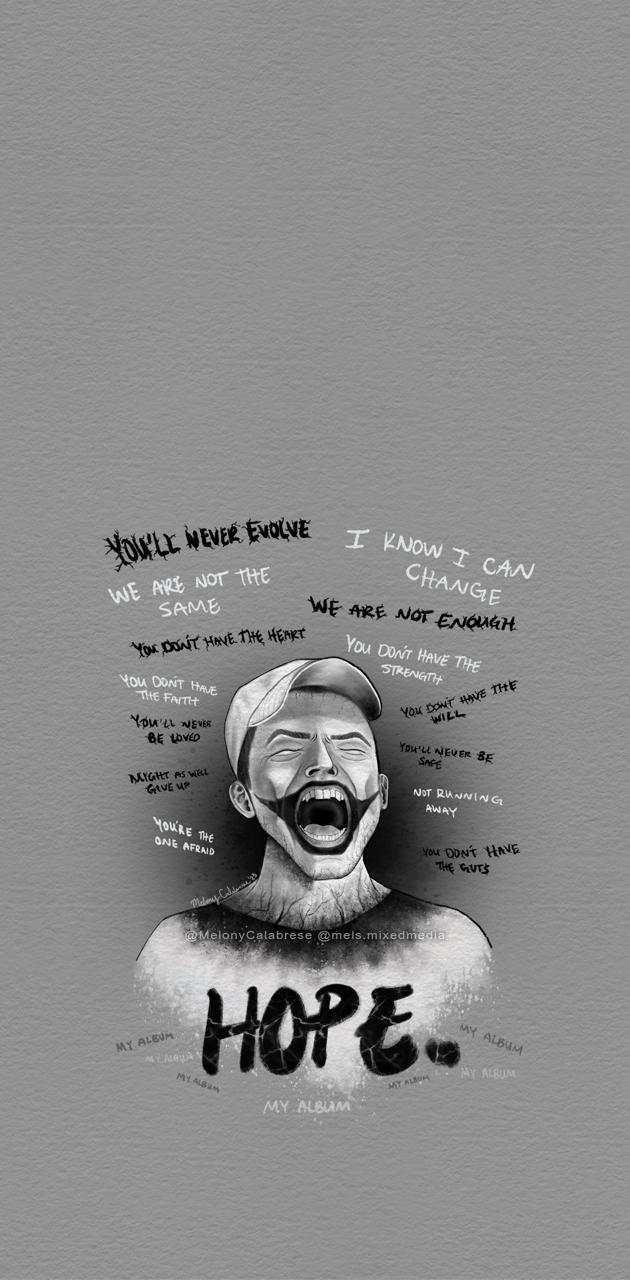 YOU'LL NEVER EVOLVE
I KNOW I CAN
CHANGE
WE ARE NOT THE
SAME
WE ARE NOT ENOUGH
YOU DON'T HAVE THE HEART
YOU DON'T HAVE THE
STRENGTH
YOU DON'T HAVE
THE FAITH
YOU DON'T HAVE THE
WILL
YOU'LL NEVER
BE LOVED
YOU'LL NEVER BE
SAFE
MIGHT AS WELL
GIVE UP
NOT RUNNING
AWAY
YOU'RE THE
ONE AFRAID
YOU DON'T HAVE
THE GUTS
Melony Calabrese '23
@MelonyCalabrese @mels.mixedmedia
HOPE.
MY ALBUM
MY ALBUM
MY ALBUM
MY ALBUM
MY ALBUM
MY ALBUM
MY ALBUM